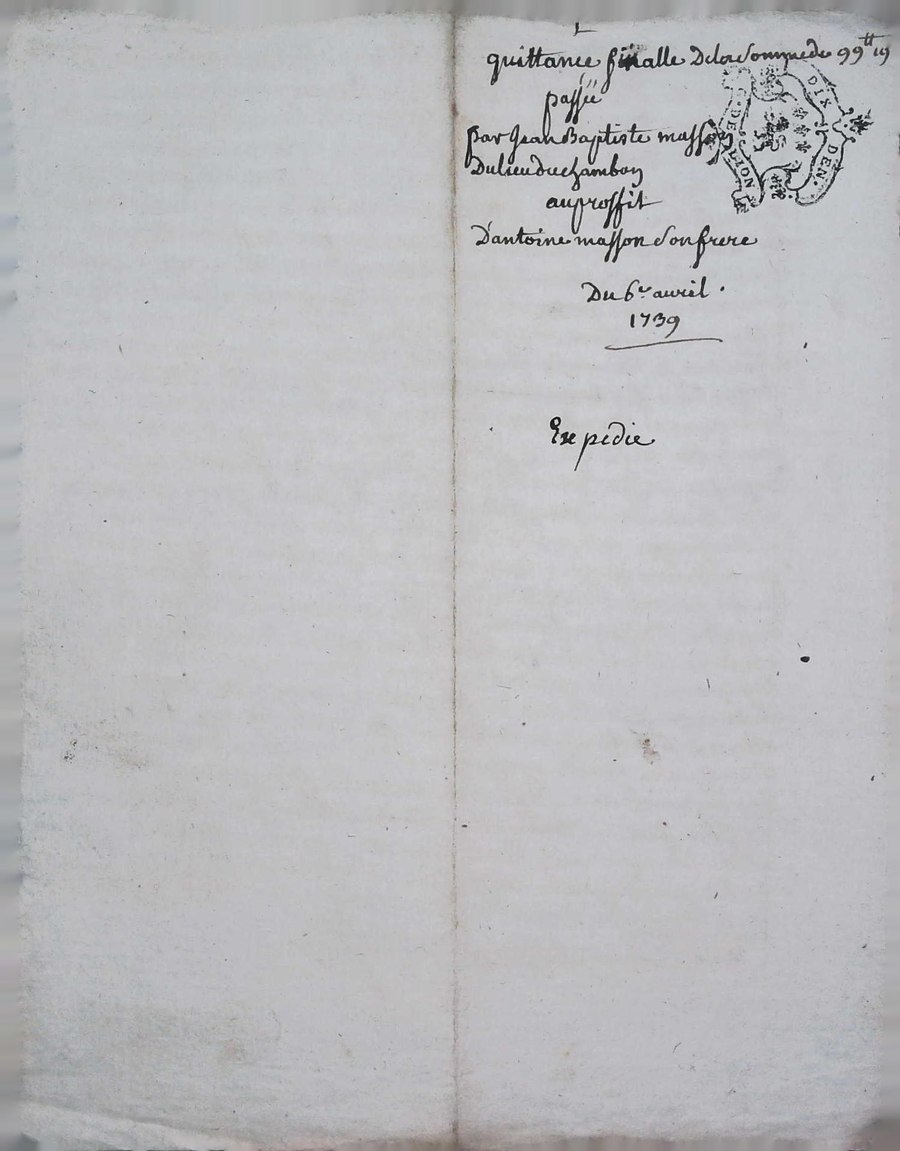 quittance finalle Delasomme de 99ᵗᵗ 19
passée
par Jean Baptiste masson
Dulieu duchambon
auproffit
D'antoine masson sonfrere
Du 6ᵉ avril .
1739
Expedie
G. DE LION
DIX DEN.